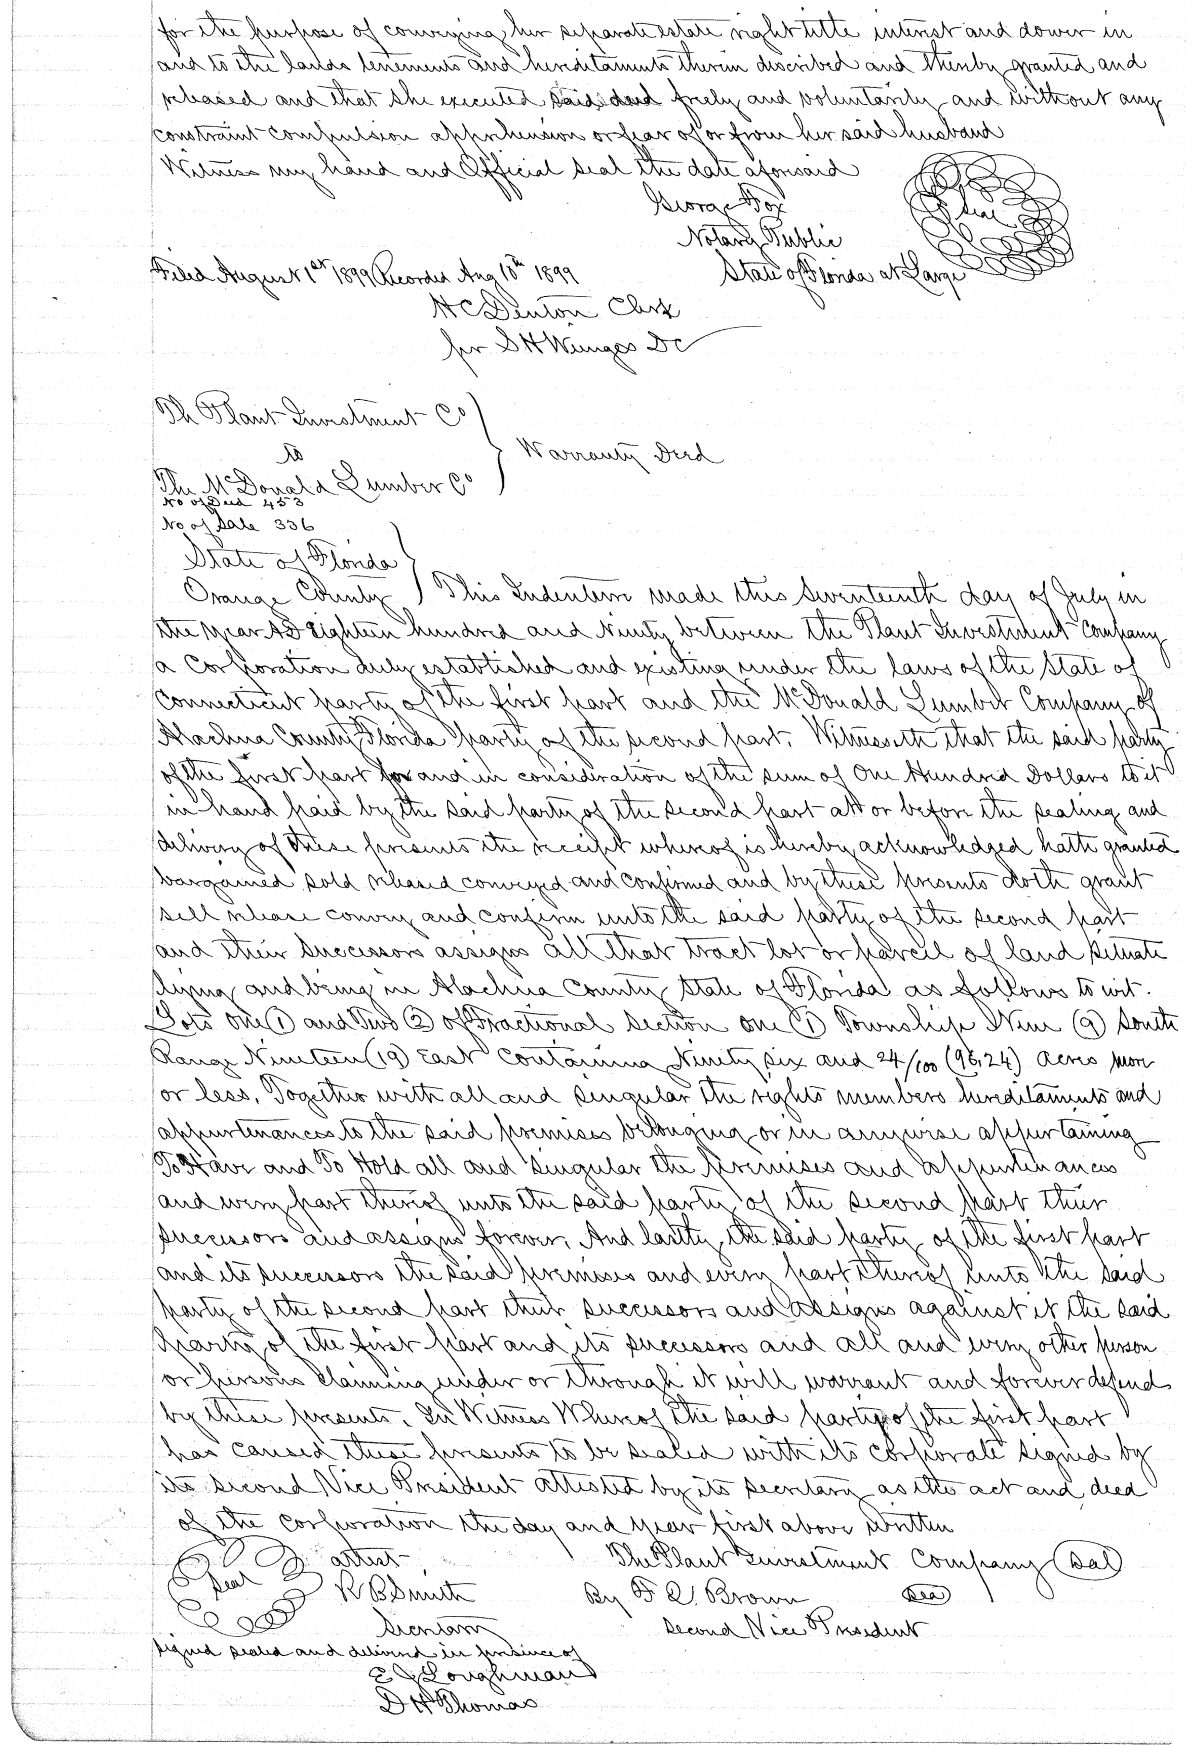 for the purpose of conveying her separate estate right title interest and dower in
and to the lands tenements and hereditaments therein discribed and thereby granted and
released and that she executed said deed freely and voluntarily and without any
constraint compulsion apprehension or fear of or from her said husband
Witness my hand and Official Seal the date aforesaid
George Fox
Seal
Notary Public
State of Florida at Large
Filed August 1st 1899 Recorded Aug 10th 1899
H C Denton Clerk
pr S H Wienges DC
Th Plant Investment Co
to
The McDonald Lumber Co
Warranty Deed
No of Deed 453
No of Sale 336
State of Florida
Orange County } This Indenture made this Seventeenth day of July in
the year AD Eighteen hundred and Ninety between the Plant Investment Company
a Corporation duly established and existing under the laws of the State of
Connecticut party of the first part and the McDonald Lumber Company of
Alachua County Florida party of the second part. Witnesseth that the said party
of the first part for and in consideration of the sum of One Hundred Dollars to it
in hand paid by the said party of the second part att or before the sealing and
delivery of these presents the receipt whereof is hereby acknowledged hath granted
bargained sold released conveyed and confirmed and by these presents doth grant
sell release convey and confirm unto the said party of the second part
and their successors assigns all that tract lot or parcel of land situate
lying and being in Alachua County State of Florida as follows to wit.
Lots One (1) and Two (2) of Fractional Section one (1) Township Nine (9) South
Range Nineteen (19) East containing Ninety six and 24/100 (96,24) acres more
or less. Together with all and singular the rights members hereditaments and
appurtenances to the said premises belonging or in anywise appurtaining
To Have and To Hold all and singular the premises and appurtenances
and every part thereof unto the said party of the second part their
successors and assigns forever, And lastly, the said party of the first part
and its successors the said premises and every part thereof unto the said
party of the second part their successors and assigns against it the said
party of the first part and its successors and all and every other person
or persons claiming under or through it will warrant and forever defend
by these presents. In Witness Whereof the said party of the first part
has caused these presents to be sealed with its corporate signed by
its second Vice President attested by its secretary as the act and deed
of the corporation the day and year first above written
Seal
attest
The Plant Investment Company Seal
R B Smith
By F Q. Brown Sea
Secretary
Second Vice President
Signed sealed and delivered in presence of
E J Loughman
D H Thomas